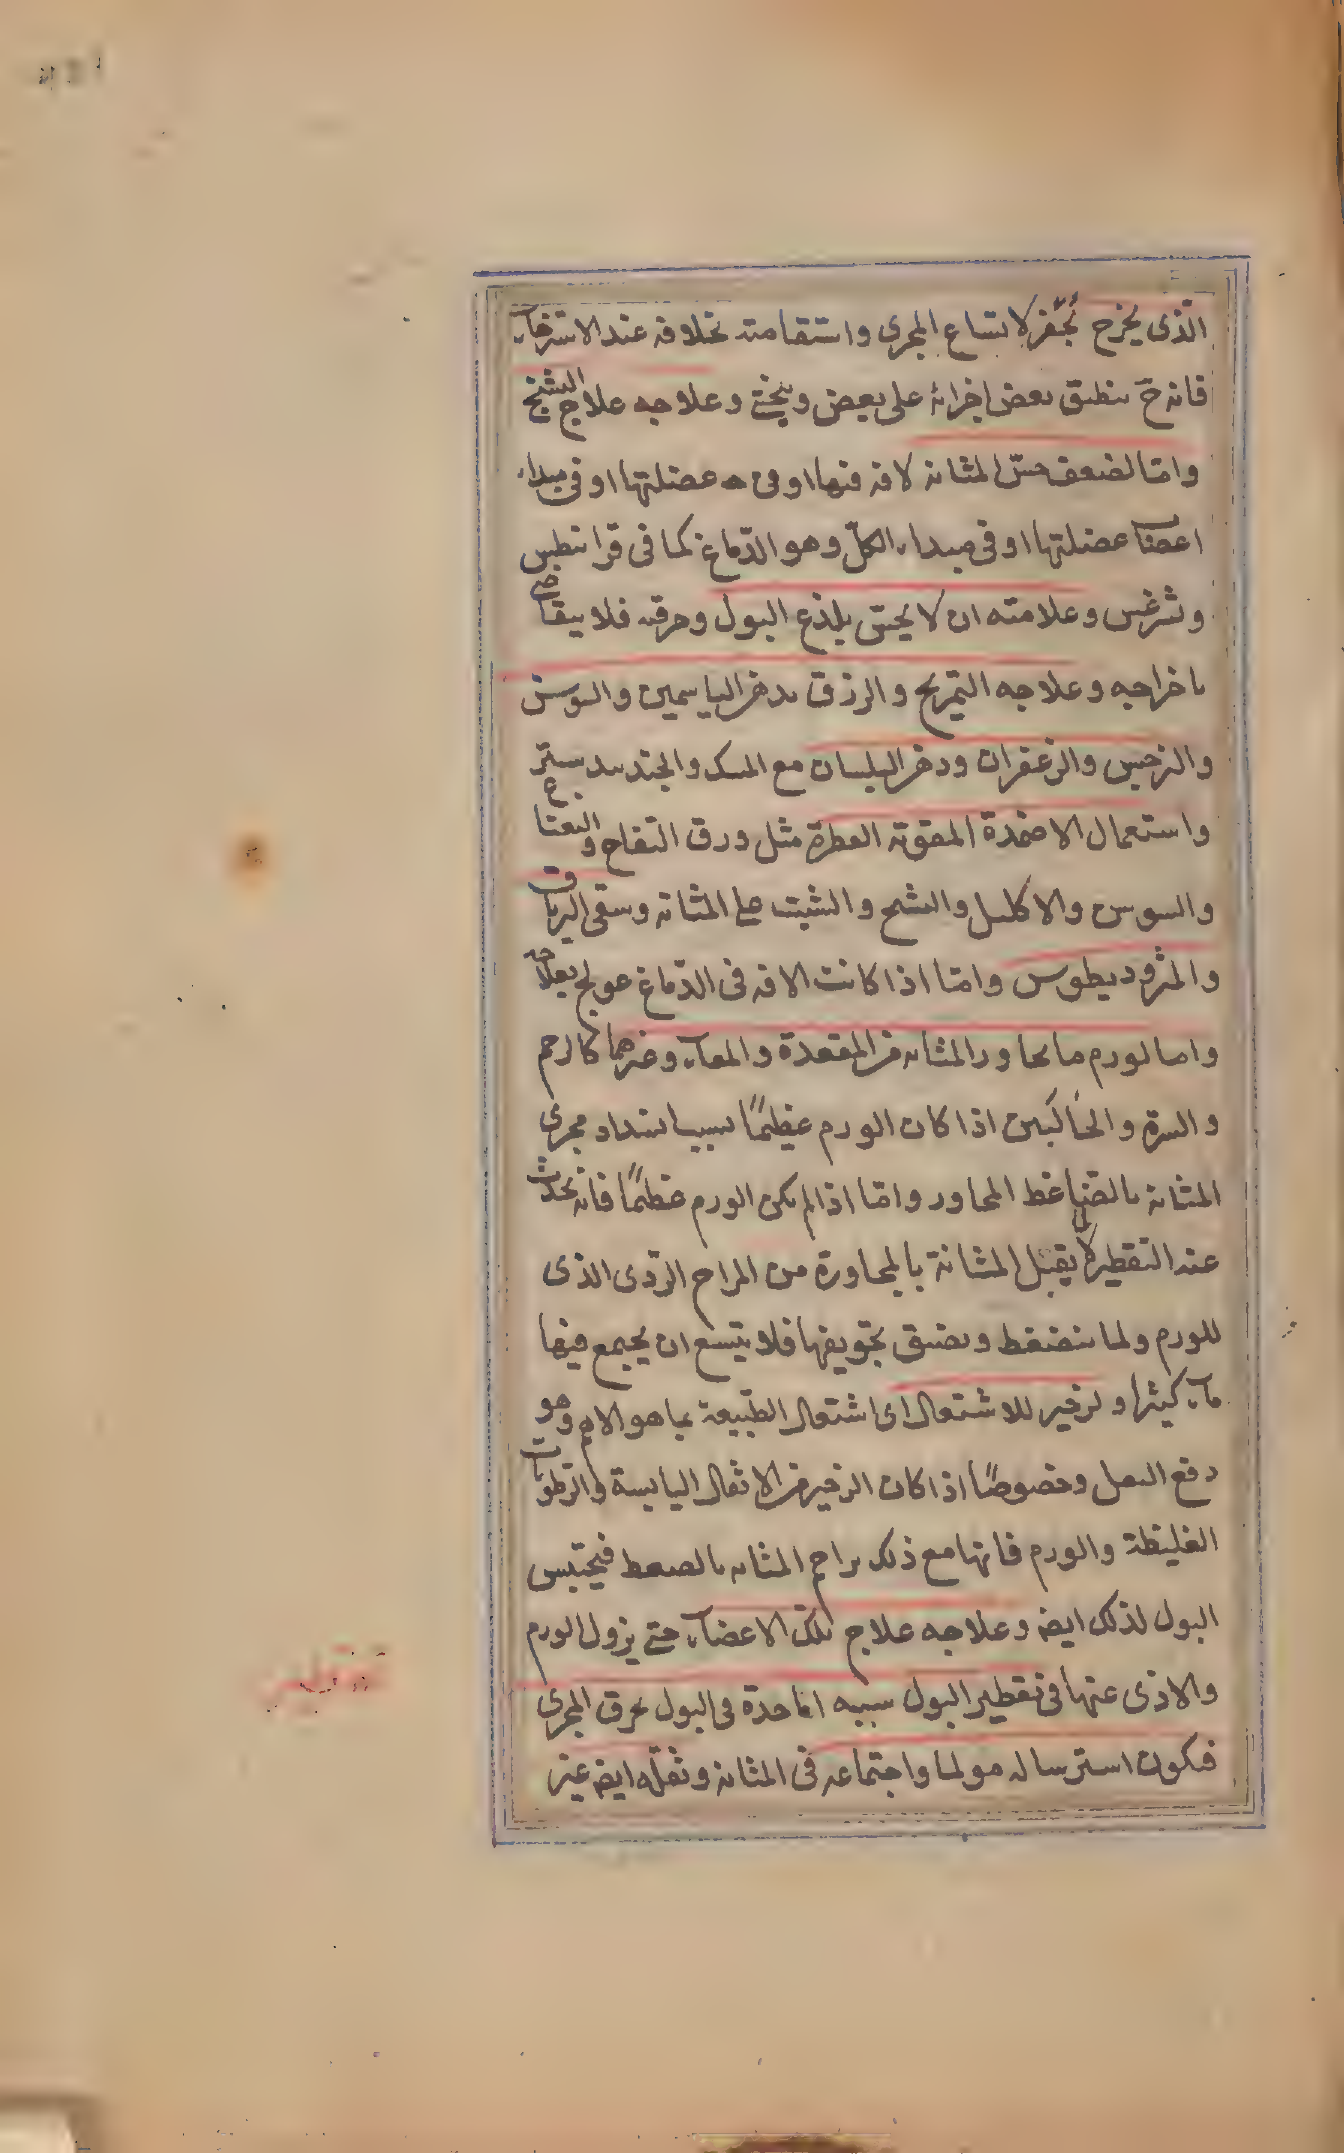 الذى يخرج بحفز لاتساع المجرى واستقامته بخلافه عند الاسترخاء
فانه ح ينطبق بعض اجزائه على بعض وينحنى وعلاجه علاج التشنج
واما لضعف حسّ المثانه لافه فيها او فى عضلتها او فى مبداء
اعصاب عضلتها او فى مبداء الكلّ وهو الدّماغ كما فى قرانيطس
وليثرغس وعلامته ان لا يحسّ بلذع البول وحرقته فلا يتقاضى
باخراجه وعلاجه التمريخ والزرق بدهن الياسمين والسوسن
والنرجس والزعفران ودهن البلسان مع المسك والجندبيدستر
واستعمال الاضمدة المقويه العطرة مثل ورق التفاح والنعناع
والسوسن والاكليل والشيح والشبت على المثانه وسقى الترياق
والمثروديطوس وامّا اذا كانت الافه فى الدّماغ عولج بعلاجه
واما لورم ما يجاور المثانه من المقعدة والمعاء وغيرهما كالرحم
والسرة والحالبين اذا كان الورم عظيمًا بسبب انسداد مجرى
المثانه بالضاغط المجاور وامّا اذا لم يكن الورم عظيمًا فانه يحدث
عنه التقطير لا يقبل المثانة بالمجاورة من المزاج الردى الذى
للورم ولما ينضغط ويضيق تجويفها فلا يتسع ان يجتمع فيها
ماء كثيرا و لزحير للاشتعال اى اشتعال الطّبيعة بما هو الاهم وهو
دفع الثفل وخصوصًا اذا كان الزحير من الاثفال اليابسة والرطوبات
الغليظة والورم فانها مع ذلك يزاحم المثانه بالضغط فيحتبس
البول لذلك ايضا وعلاجه علاج تلك الاعضاء حتى يزول الورم
والاذى عنها فى تقطير البول سببه اما حدة فى البول يحرق المجرى
فيكون استرساله مولما واجتماعه فى المثانه وثقله ايضا غير